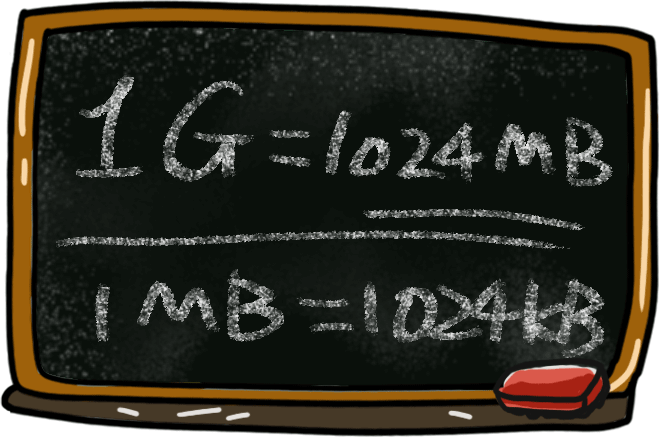 1G=1024MB
1MB=1024kB